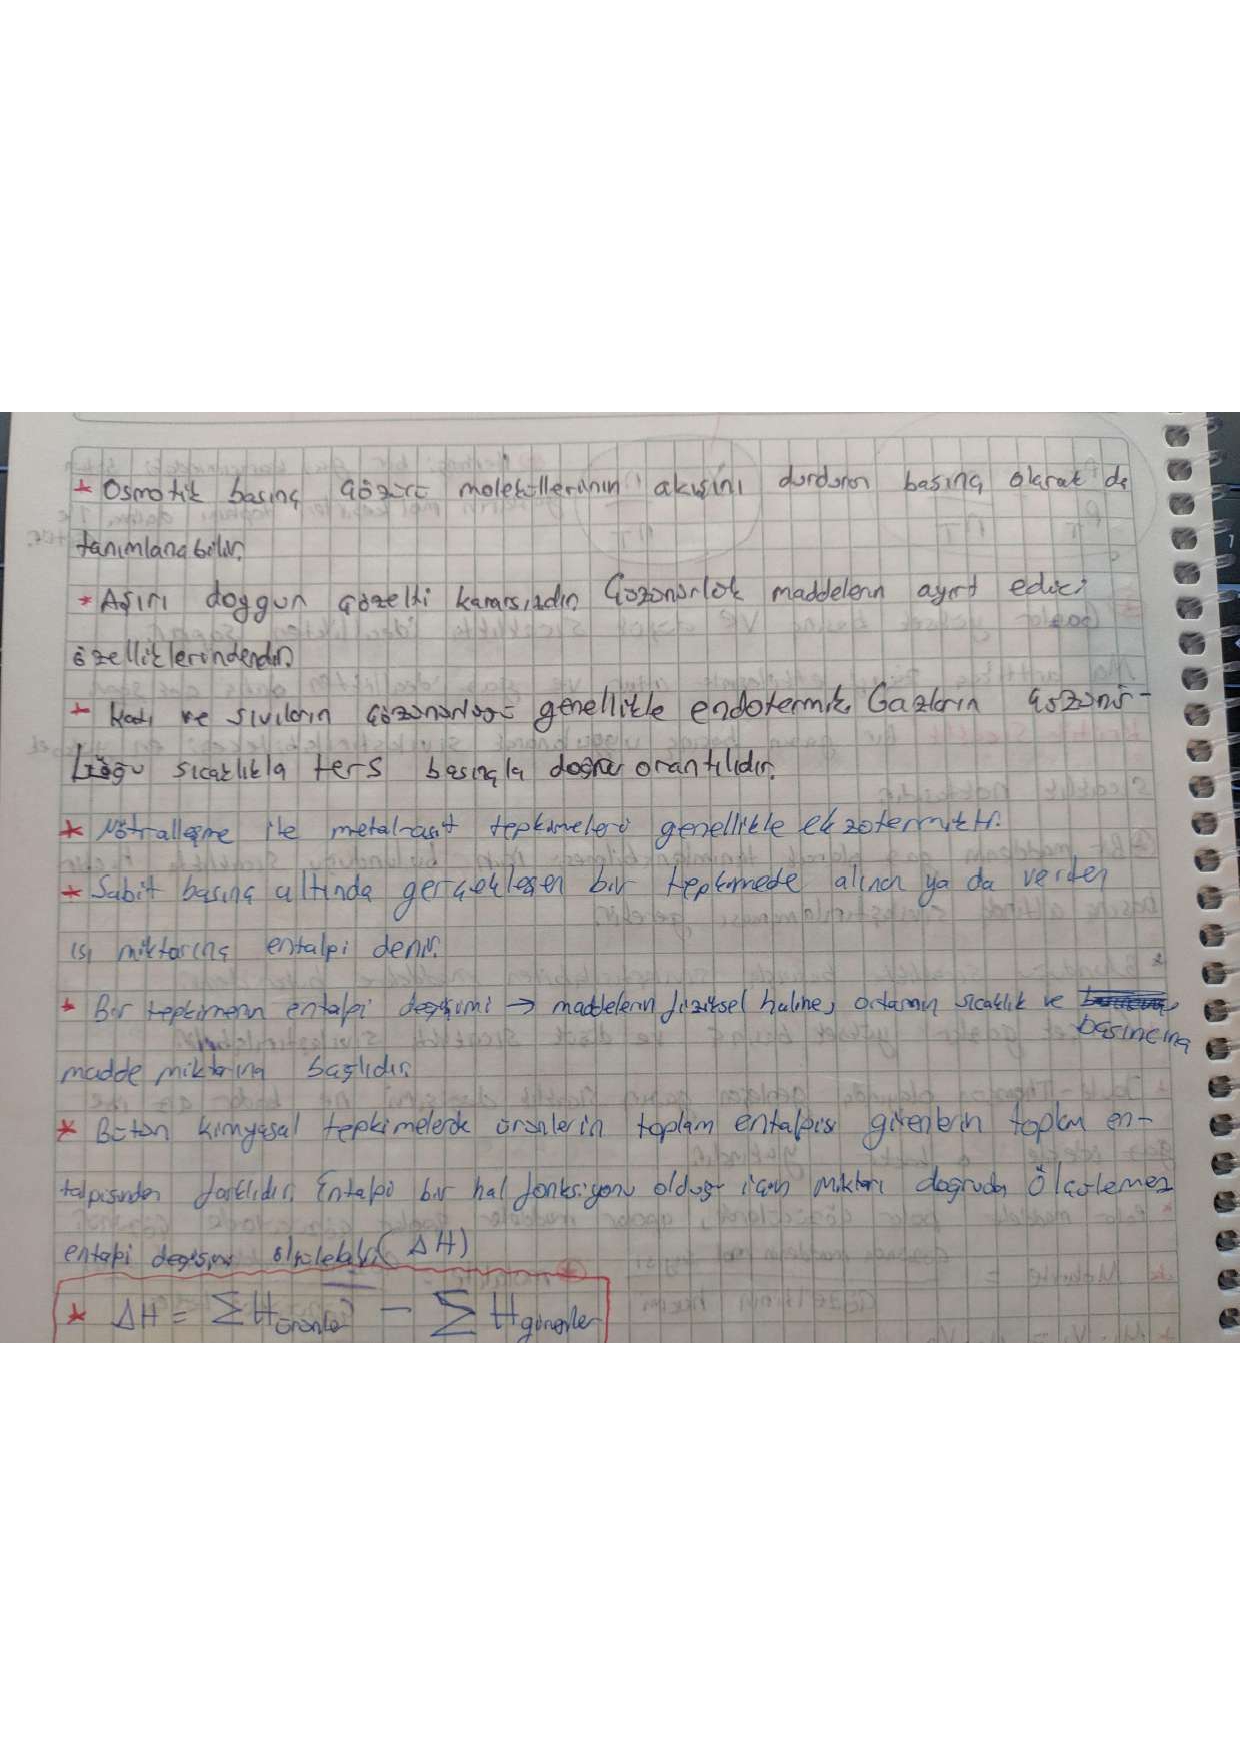 * Osmotik basınç çözücü moleküllerinin akışını durduran basınç olarak da
tanımlanabilir.
* Aşırı doygun çözelti kararsızdır. Çözünürlük maddelerin ayırt edici
özelliklerindendir.
* Katı ve sıvıların çözünürlüğü genellikle endotermik. Gazların çözünür-
lüğü sıcaklıkla ters basınçla doğru orantılıdır.
* Nötralleşme ile metal-asit tepkimeleri genellikle ekzotermiktir.
* Sabit basınç altında gerçekleşen bir tepkimede alınan ya da verilen
ısı miktarına entalpi denir.
* Bir tepkimenin entalpi değişimi → maddelerin fiziksel haline, ortamın sıcaklık ve
basıncına
madde miktarına bağlıdır.
* Bütün kimyasal tepkimelerde ürünlerin toplam entalpisi girenlerin toplam en-
talpisinden farklıdır. Entalpi bir hal fonksiyonu olduğu için miktarı doğrudan ölçülemez
entalpi değişimi ölçülebilir (ΔH)
* ΔH = ΣHürünler - ΣHgirenler